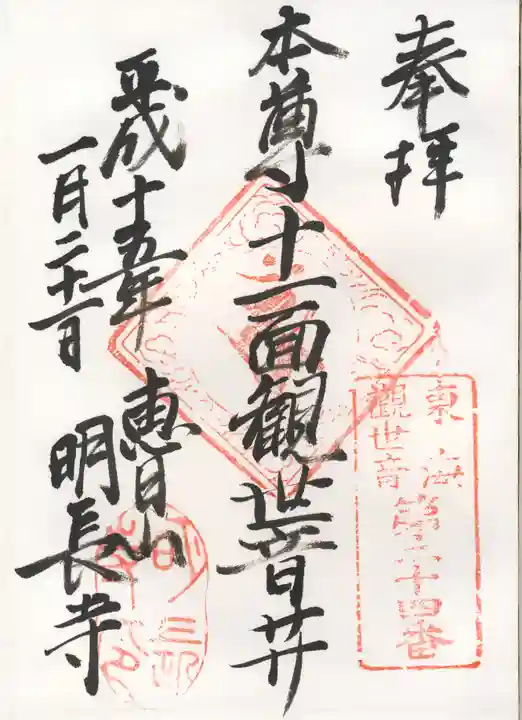 奉拝
東海
觀世音
第二十四番
本尊十一面観世音廾
平成十五年
一月二十一日
恵日山
明長寺